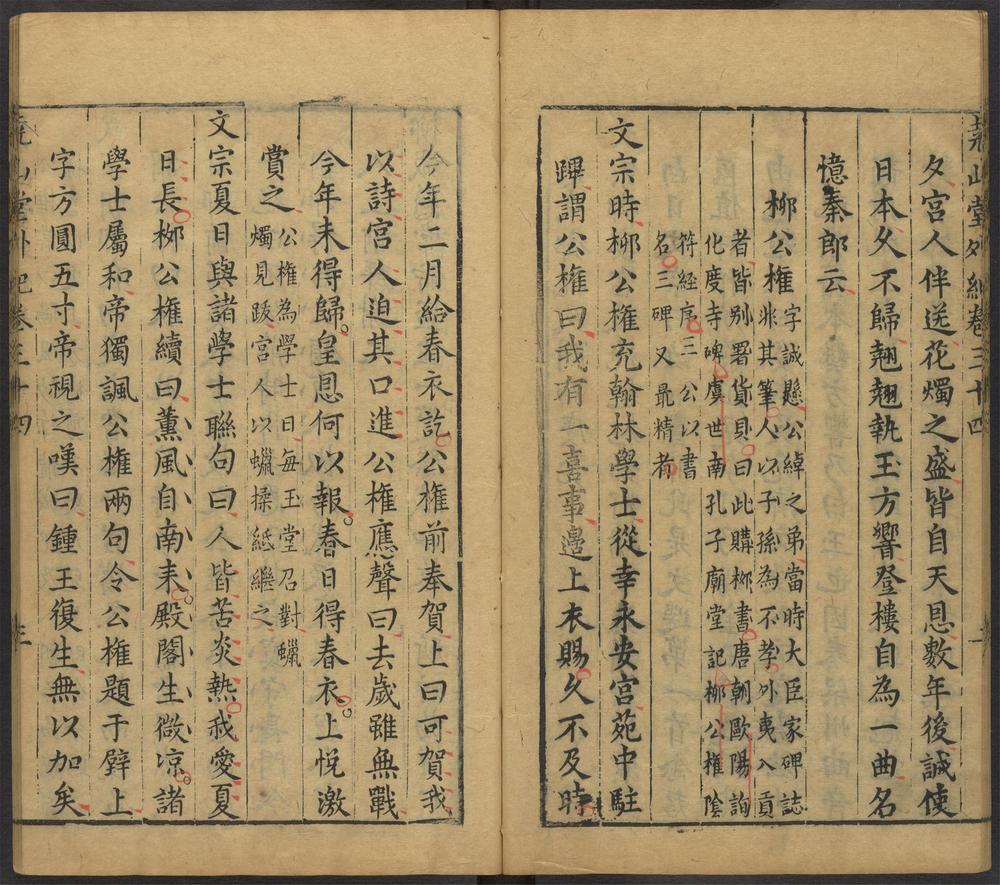 堯山堂外紀卷三十四
夕宮人伴送花燭之盛皆自天恩數年後誠使
日本久不歸翹翹執玉方響登樓自為一曲名
憶秦郎云
柳公權字誠懸公綽之弟當時大臣家碑誌
非其筆人以子孫為不孝外夷入貢
者皆別署貨貝曰此購柳書唐朝歐陽詢
化度寺碑虞世南孔子廟堂記柳公權陰
符經序三公以書
名三碑又最精者
文宗時柳公權充翰林學士從幸永安宮苑中駐
蹕謂公權曰我有一喜事邊上衣賜久不及時
今年二月給春衣訖公權前奉賀上曰可賀我
以詩宮人迫其口進公權應聲曰去歲雖無戰
今年未得歸皇恩何以報春日得春衣上悅激
賞之公權為學士日每玉堂召對蠟
燭見跋宮人以蠟揉紙繼之
文宗夏日與諸學士聯句曰人皆苦炎熱我愛夏
日長柳公權續曰薰風自南來殿閣生微凉諸
學士屬和帝獨諷公權兩句令公權題于壁上
字方圓五寸帝視之嘆曰鍾王復生無以加矣
堯山堂外紀卷三十四